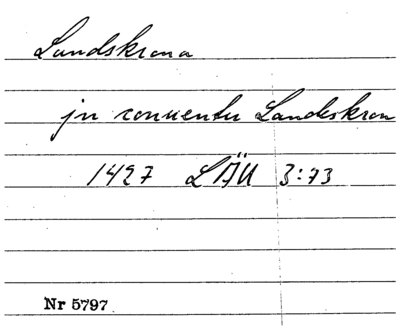 Landskrona
jn conuentu Landeskron
1427 LÄU 3:73
Nr 5797